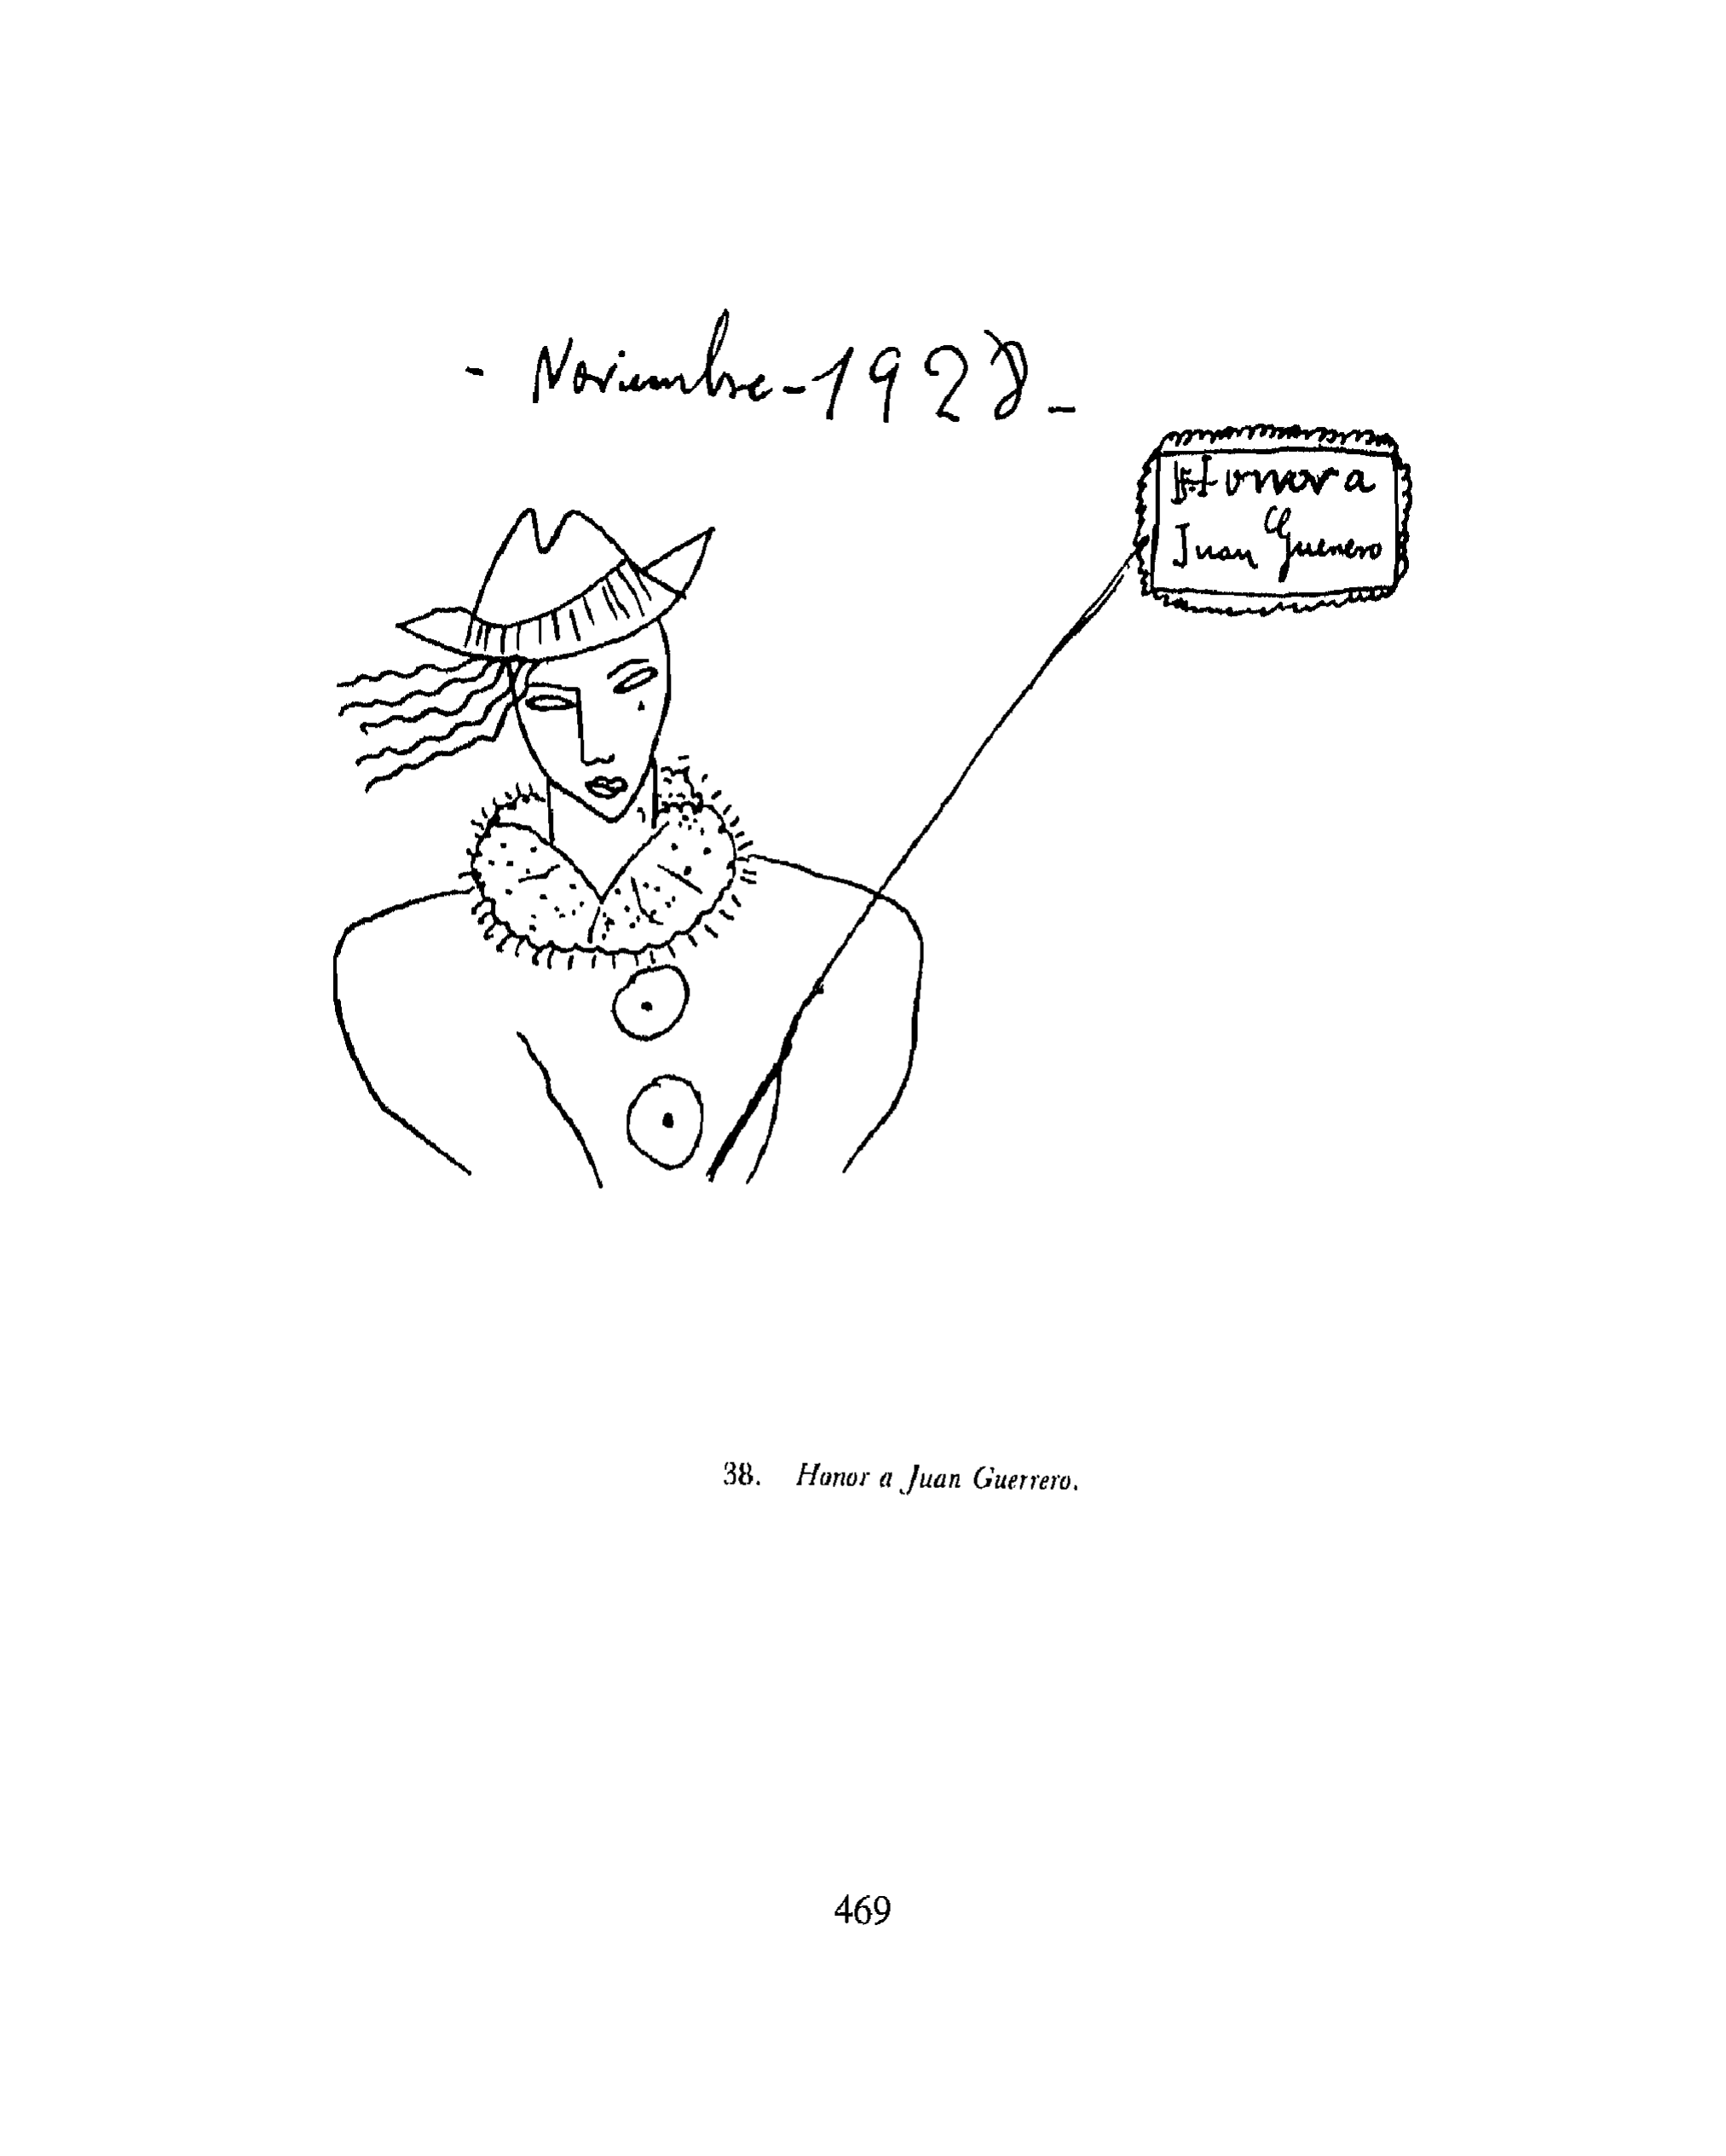 - Noviembre - 1928 -
Honor a
Juan Guerrero
38. Honor a Juan Guerrero.
469